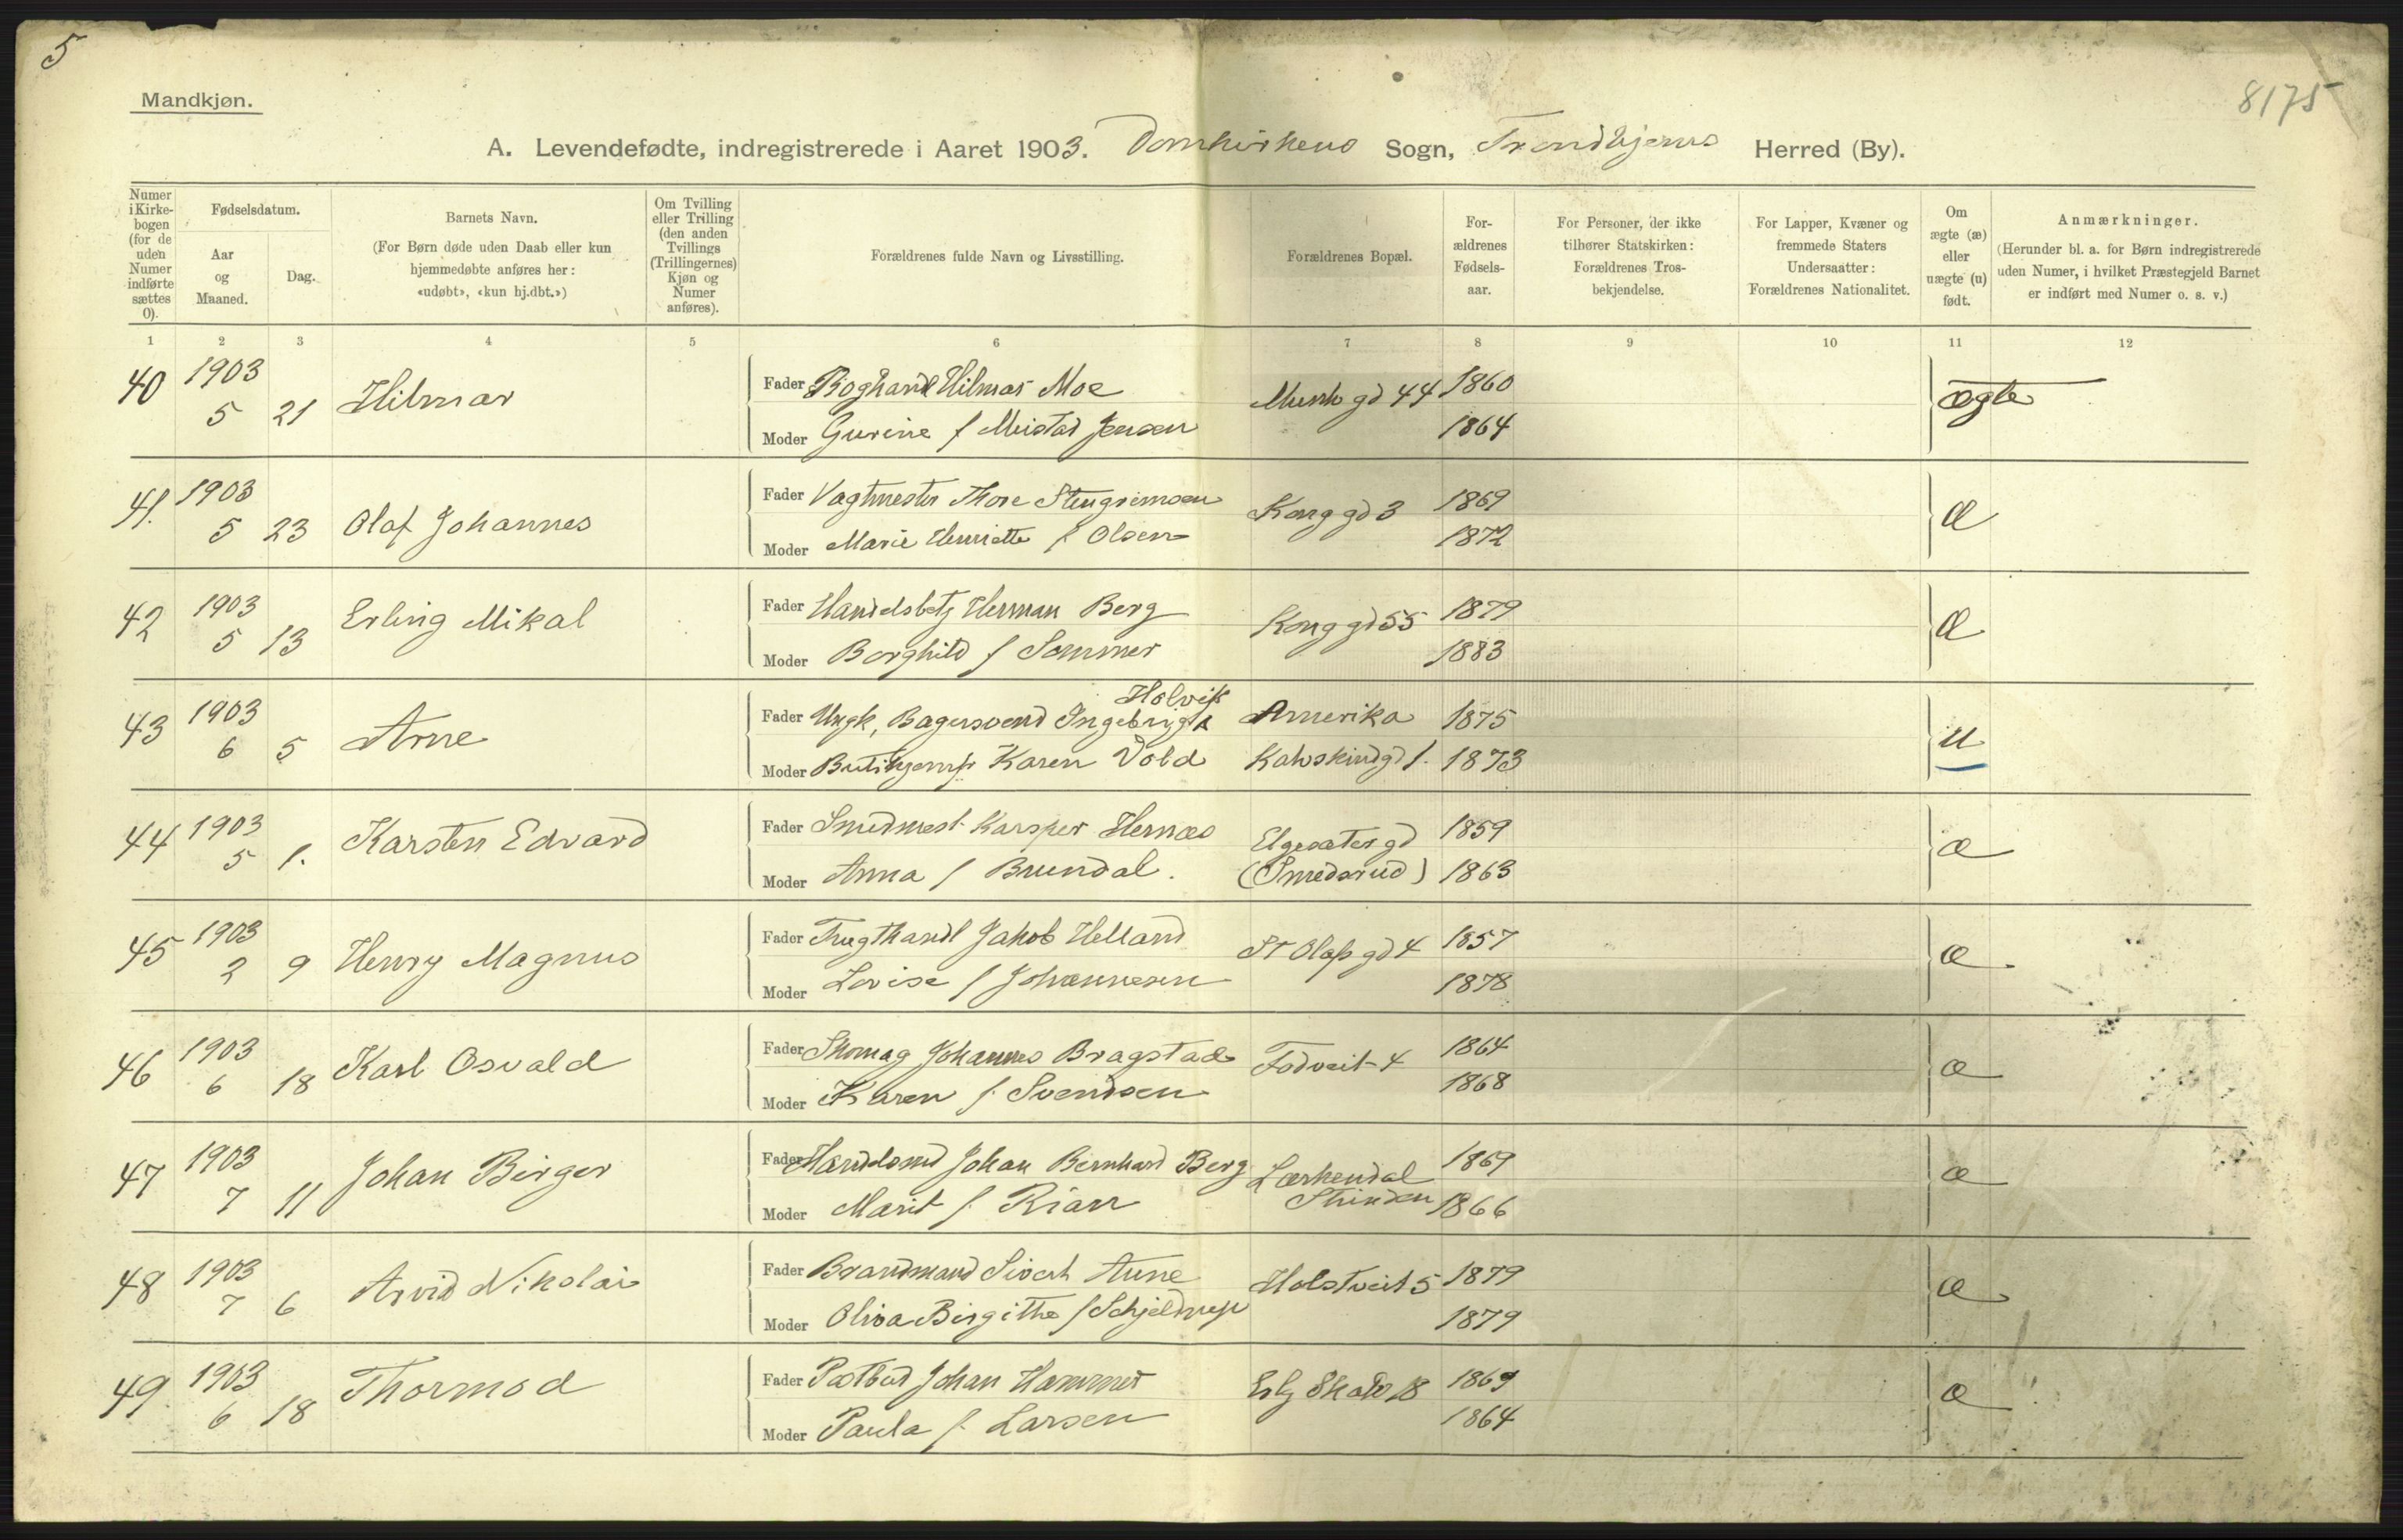 5
Mandkjøn.
8175
A. Levendefødte, indregistrerede i Aaret 1903. Domkirkens Sogn, Trondhjems Herred (By).
Numer i Kirkebogen (for de uden Numer indførte sættes 0).
Fødselsdatum.
Aar og Maaned.
Dag.
Barnets Navn.
(For Børn døde uden Daab eller kun hjemmedøbte anføres her: «udøbt», «kun hj.dbt.»)
Om Tvilling eller Trilling (den anden Tvillings (Trillingernes) Kjøn og Numer anføres).
Forældrenes fulde Navn og Livsstilling.
Forældrenes Bopæl.
For-ældrenes Fødsels-aar.
For Personer, der ikke tilhører Statskirken: Forældrenes Tros-bekjendelse.
For Lapper, Kvæner og fremmede Staters Undersaatter: Forældrenes Nationalitet.
Om ægte (æ) eller uægte (u) født.
Anmærkninger.
(Herunder bl. a. for Børn indregistrerede uden Numer, i hvilket Præstegjeld Barnet er indført med Numer o. s. v.)
1 2 3 4 5 6 7 8 9 10 11 12
40 1903 5 21 Hilmar Fader Boghandl Hilmar Moe Munkgd 44 1860 ægte
Moder Gurine f Meistad Jensen 1864
41. 1903 5 23 Olaf Johannes Fader Vagtmester Thore Stengrimsen Konggd 3 1869 Æ
Moder Marie Henriette f Olsen 1872
42 1903 5 13 Erling Mikal Fader Handelsbetj Herman Berg Konggd 55 1879 Æ
Moder Borghild f Sommer 1883
43 1903 6 5 Arne Fader Ungk, Bagersvend Ingebrigt Holvik Amerika 1875 u
Moder Butikjomfr Karen Vold Kalvskindgd 1. 1873
44 1903 5 1. Karsten Edvard Fader Smedmest. Karsper Hernæs Elgesætergd 1859 æ
Moder Anna f Brundal. (Smedsrud) 1863
45 1903 2 9 Henry Magnus Fader Frugthandl Jakob Helland St Olafsgd 4 1857 æ
Moder Lovise f Johannesen 1878
46 1903 6 18 Karl Osvald Fader Skomag Johannes Bragstad Fodveit 4 1864 æ
Moder Karen f. Svendsen 1868
47 1903 7 11 Johan Birger Fader Handelsmd Johan Bernhard Berg Lærkendal 1869 æ
Moder Marit f. Rian Strinden 1866
48 1903 7 6 Arvid Nikolai Fader Brandmand Sivert Aune Holstveit 5 1879 æ
Moder Oliva Birgithe f Schjeldrup 1879
49. 1903 6 18 Thormod Fader Postbud Johan Hammer Erlg Skak 18 1869 æ
Moder Paula f. Larsen 1864